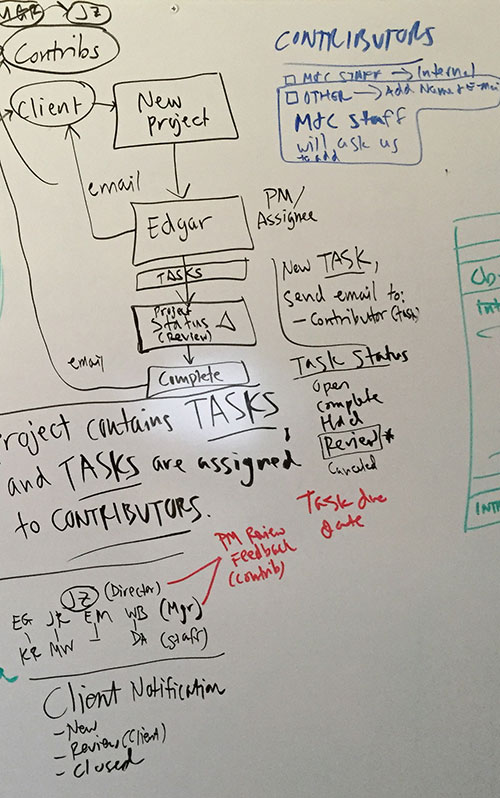 MGR → JZ
Contribs
Client
New
Project
email
Edgar
PM/
Assignee
TASKS
Project
Status
(Review)
email
Complete
CONTRIBUTORS
M&C STAFF → Internal
OTHER → Add Name & E-mail
M&C Staff
will ask us
to add
New TASK,
send email to:
- Contributor (task)
Task Status
Open
Complete
Hold
Review *
Canceled
Project contains TASKS,
and TASKS are assigned
to CONTRIBUTORS.
Task due
date
PM Review
Feedback
(Contrib)
JZ (Director)
EG JR EM WB (Mgr)
KR MW — DA (Staff)
Client Notification
- New
- Review (Client)
- Closed